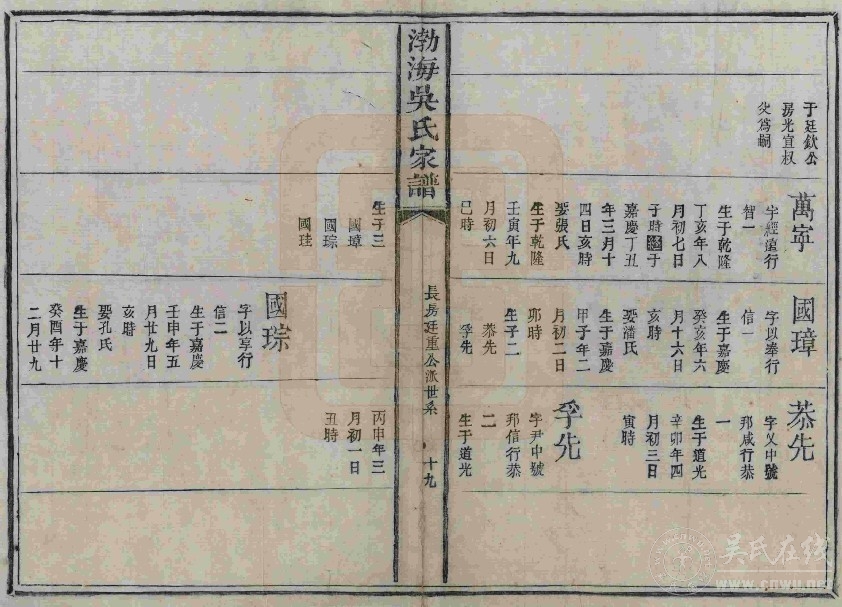 渤海吳氏家譜
長房廷重公派世系
十九
于廷欽公
房光宣叔
公為嗣
萬寧
字經遠行
智一
生于乾隆
丁亥年八
月初七日
子時繼于
嘉慶丁丑
年三月十
四日亥時
娶張氏
生于乾隆
壬寅年九
月初六日
巳時
生子三
國璋
國琮
國珪
國璋
字以奉行
信一
生于嘉慶
癸亥年六
月十六日
亥時
娶潘氏
生于嘉慶
甲子年二
月初二日
卯時
生子二
恭先
孚先
國琮
字以享行
信二
生于嘉慶
壬申年五
月廿九日
亥時
娶孔氏
生于嘉慶
癸酉年十
二月廿九
恭先
字乂中號
邦咸行恭
一
生于道光
辛卯年四
月初三日
寅時
孚先
字尹中號
邦信行恭
二
生于道光
丙申年三
月初一日
丑時
吴氏在线
www.cnwu.net